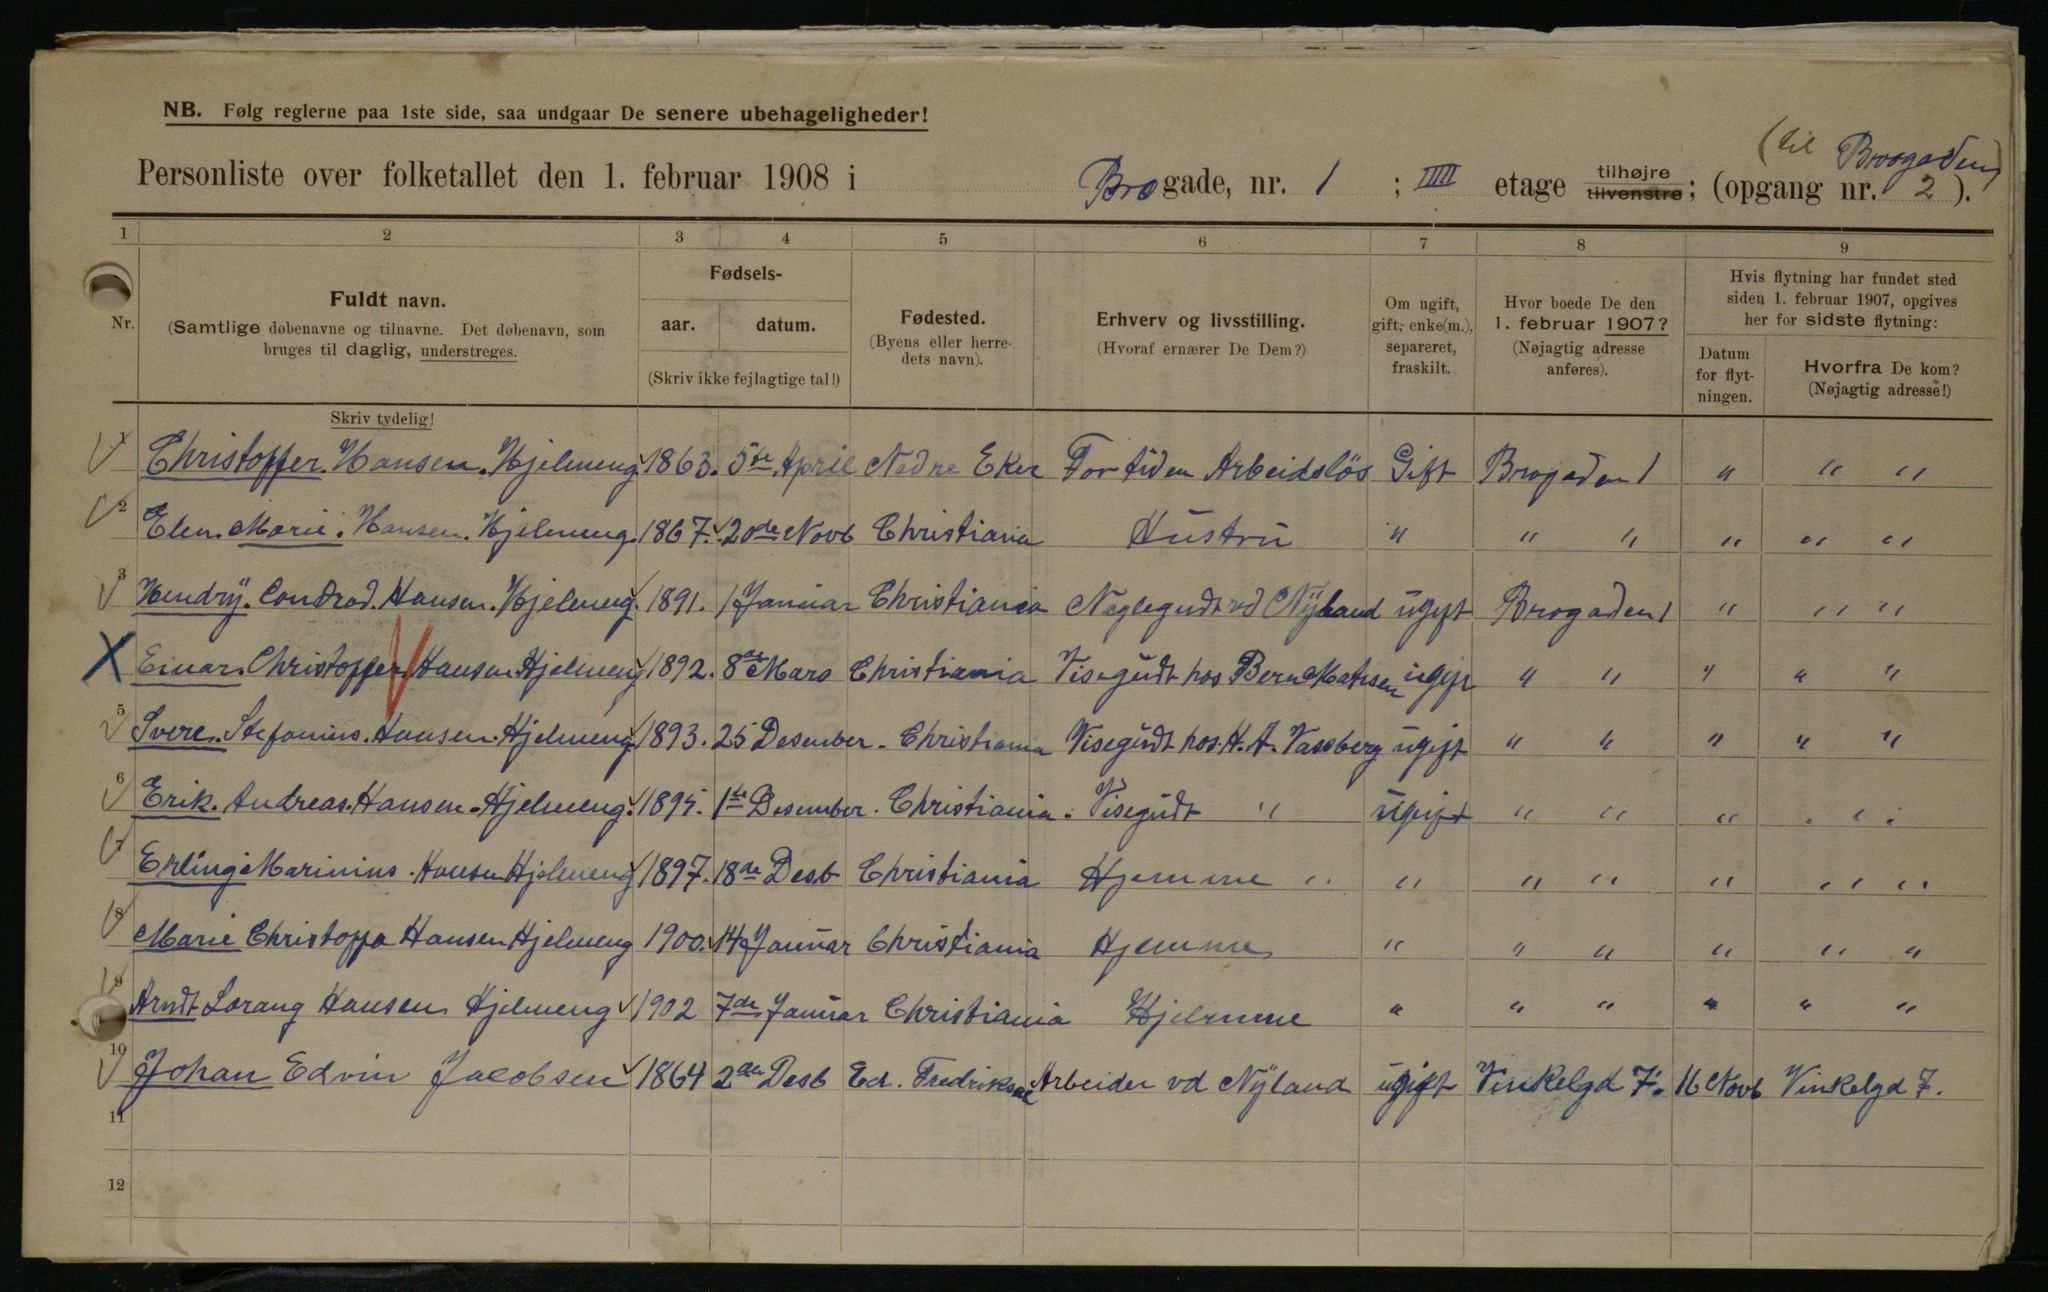 NB. Følg reglerne paa 1ste side, saa undgaar De senere ubehageligheder!
(til Brogaden)
Personliste over folketallet den 1. februar 1908 i Brogade, nr. 1 ; IIII etage tilhøjre tilvenstre; (opgang nr. 2 ).
1 2 3 4 5 6 7 8 9
Nr.
Fuldt navn.
(Samtlige døbenavne og tilnavne. Det døbenavn, som
bruges til daglig, understreges.
Skriv tydelig!
Fødsels-
aar. datum.
(Skriv ikke fejlagtige tal!)
Fødested.
(Byens eller herre-
dets navn).
Erhverv og livsstilling.
(Hvoraf ernærer De Dem?)
Om ugift,
gift, enke(m.),
separeret,
fraskilt.
Hvor boede De den
1. februar 1907?
(Nøjagtig adresse
anføres).
Hvis flytning har fundet sted
siden 1. februar 1907, opgives
her for sidste flytning:
Datum
for flyt-
ningen.
Hvorfra De kom?
(Nøjagtig adresse!)
1 Christoffer. Hansen. Hjelmeng 1863. 5te April Nedre Eker For tiden Arbeidsløs Gift Brogaden 1 " " "
2 Elen. Marie. Hansen. Hjelmeng. 1867. 20de Novb Christiania Hustru " " " " " "
3 Hendrÿ. Condrad. Hansen. Hjelmeng. 1891. 1 Januar Christiania Naglegudt vd Nÿland ugift Brogaden 1 " " "
Einar. Christoffer Hansen Hjelmeng 1892. 8de Mars Christiania Visegudt hos Bern Matisen ugift " " " " "
5 Svere. Stefanius. Hansen. Hjelmeng 1893. 25 Desember. Christiania Visegudt hos. H. A. Vassberg ugift " " " " "
6 Erik. Andreas. Hansen. Hjelmeng. 1895. 1te Desember. Christiania. Visegudt " ugift " " " " "
7 Erling Marinius. Hansen Hjelmeng 1897. 18de Desb Christiania Hjemme " " " " " " "
8 Marie Christoffa Hansen Hjelmeng 1900. 14 Januar Christiania Hjemme " " " " " "
9 Arndt Lorang Hansen Hjelmeng 1902 7de Januar Christiania Hjelmme " " " " " "
10 Johan Edvin Jacobsen 1864 2den Desb Ed. Fredriks Arbeider vd Nÿland ugift Vinkelgd 7. 16 Novb Vinkelgd 7.
11
12